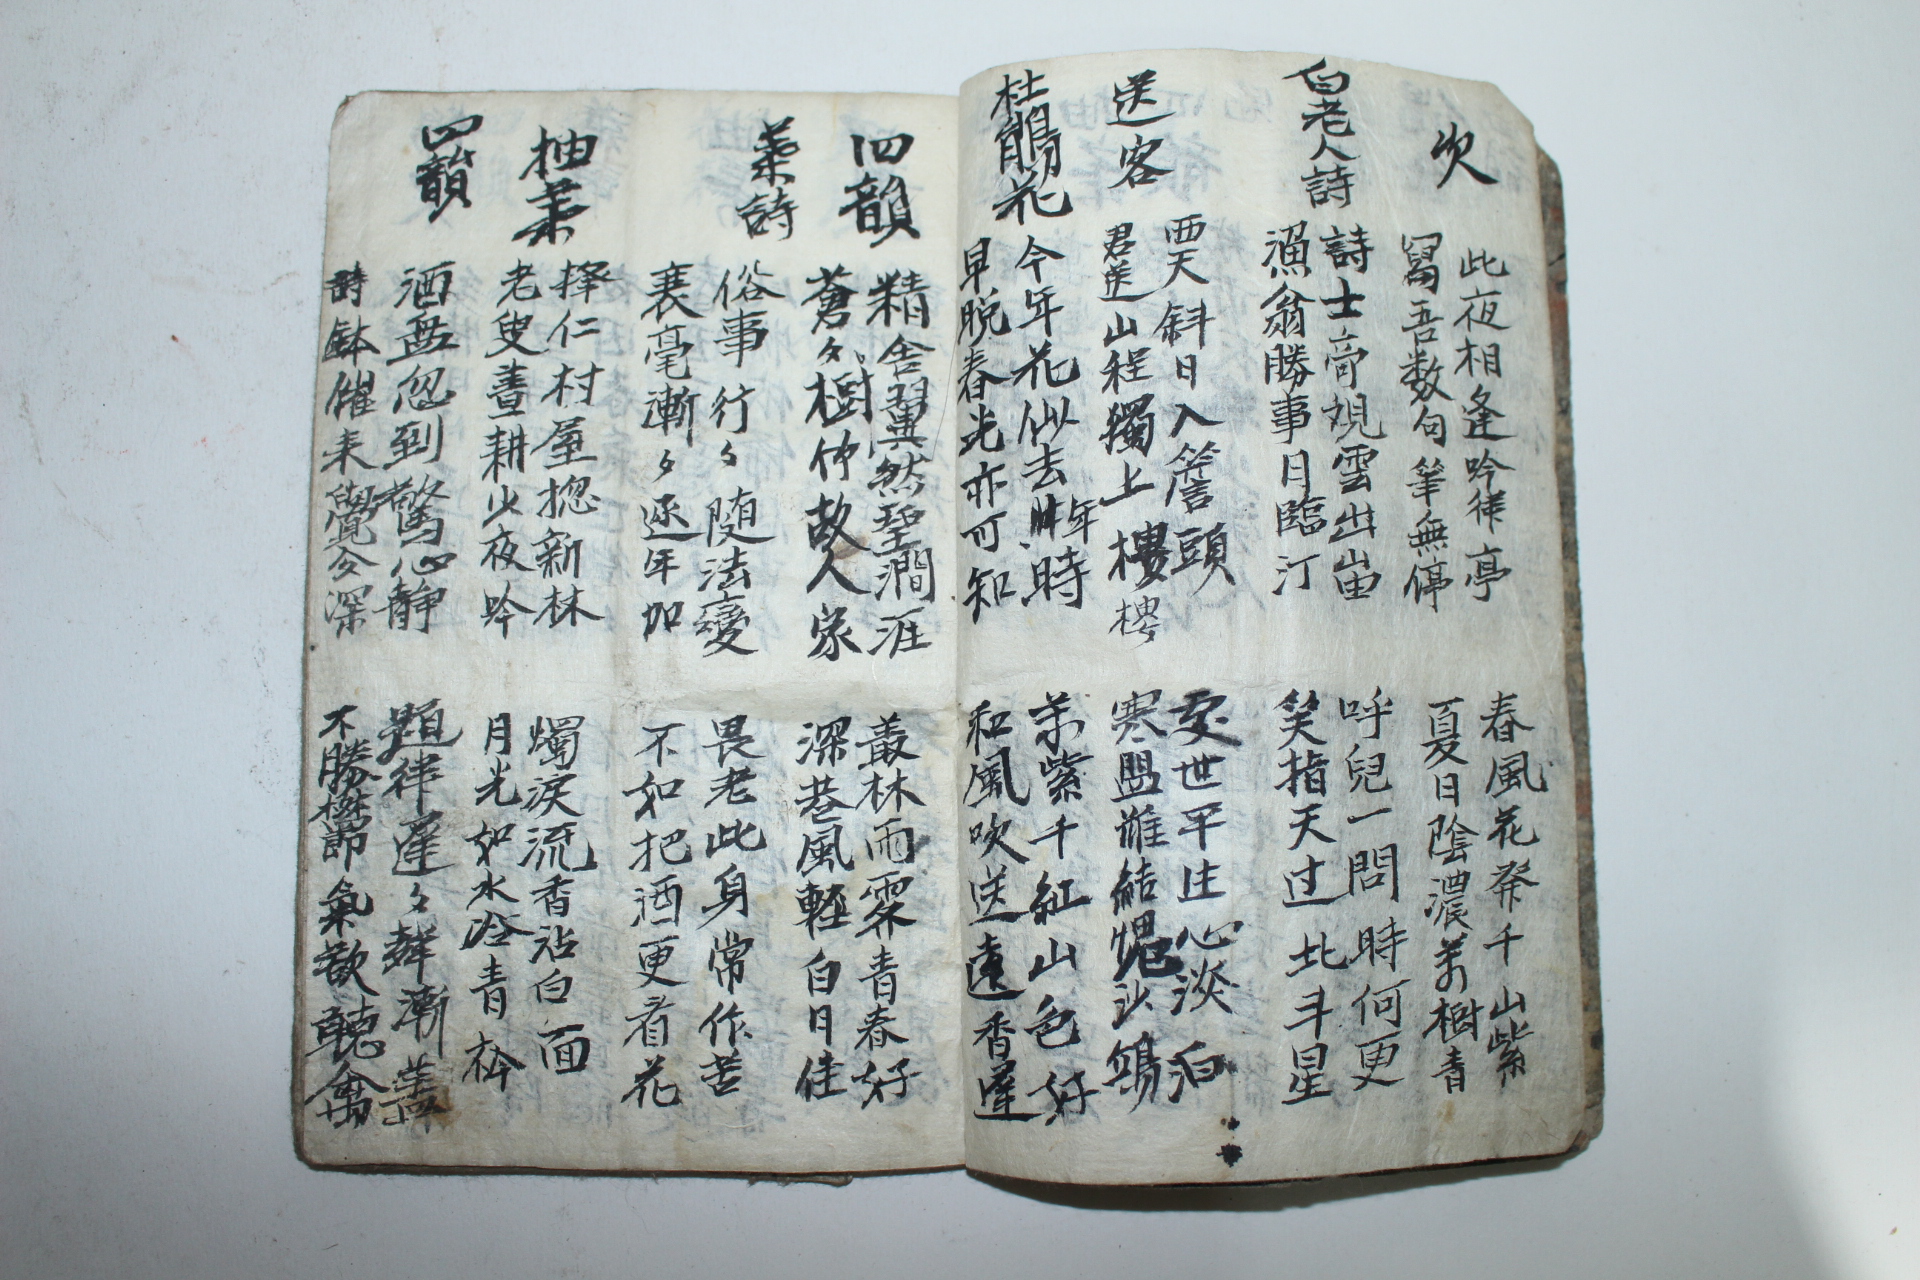 次
此夜相逢吟徉亭
春風花發千山紫
寫吾数句筆無停
夏日陰濃萬樹青
白老人詩
詩士奇規雲出宙
呼兒一問時何更
漁翁勝事月臨汀
笑指天过北斗星
送客
西天斜日入簷頭
處世平生心淡泊
君送山程獨上樓樓
寒盟誰結愧沙鴎
杜鵑花
今年花似去年時
萬紫千紅山色好
早晩春光亦可知
和風吹送遠香遲
四韻
精舍翼然碧澗涯
叢林雨霽青春好
蒼々樹伴故人家
深巷風輕白日佳
葉詩
俗事行々随法變
畏老此身常作苦
衰毫漸々逐年加
不如把酒更看花
抽葉
擇仁村屋揔新林
燭淚流香沾白面
老叟善耕少夜吟
月光如水冷青衿
四韻
酒無忽到驚心静
題律遲々舞漸
詩鉢催来覺今深
不勝 節氣歡聽禽